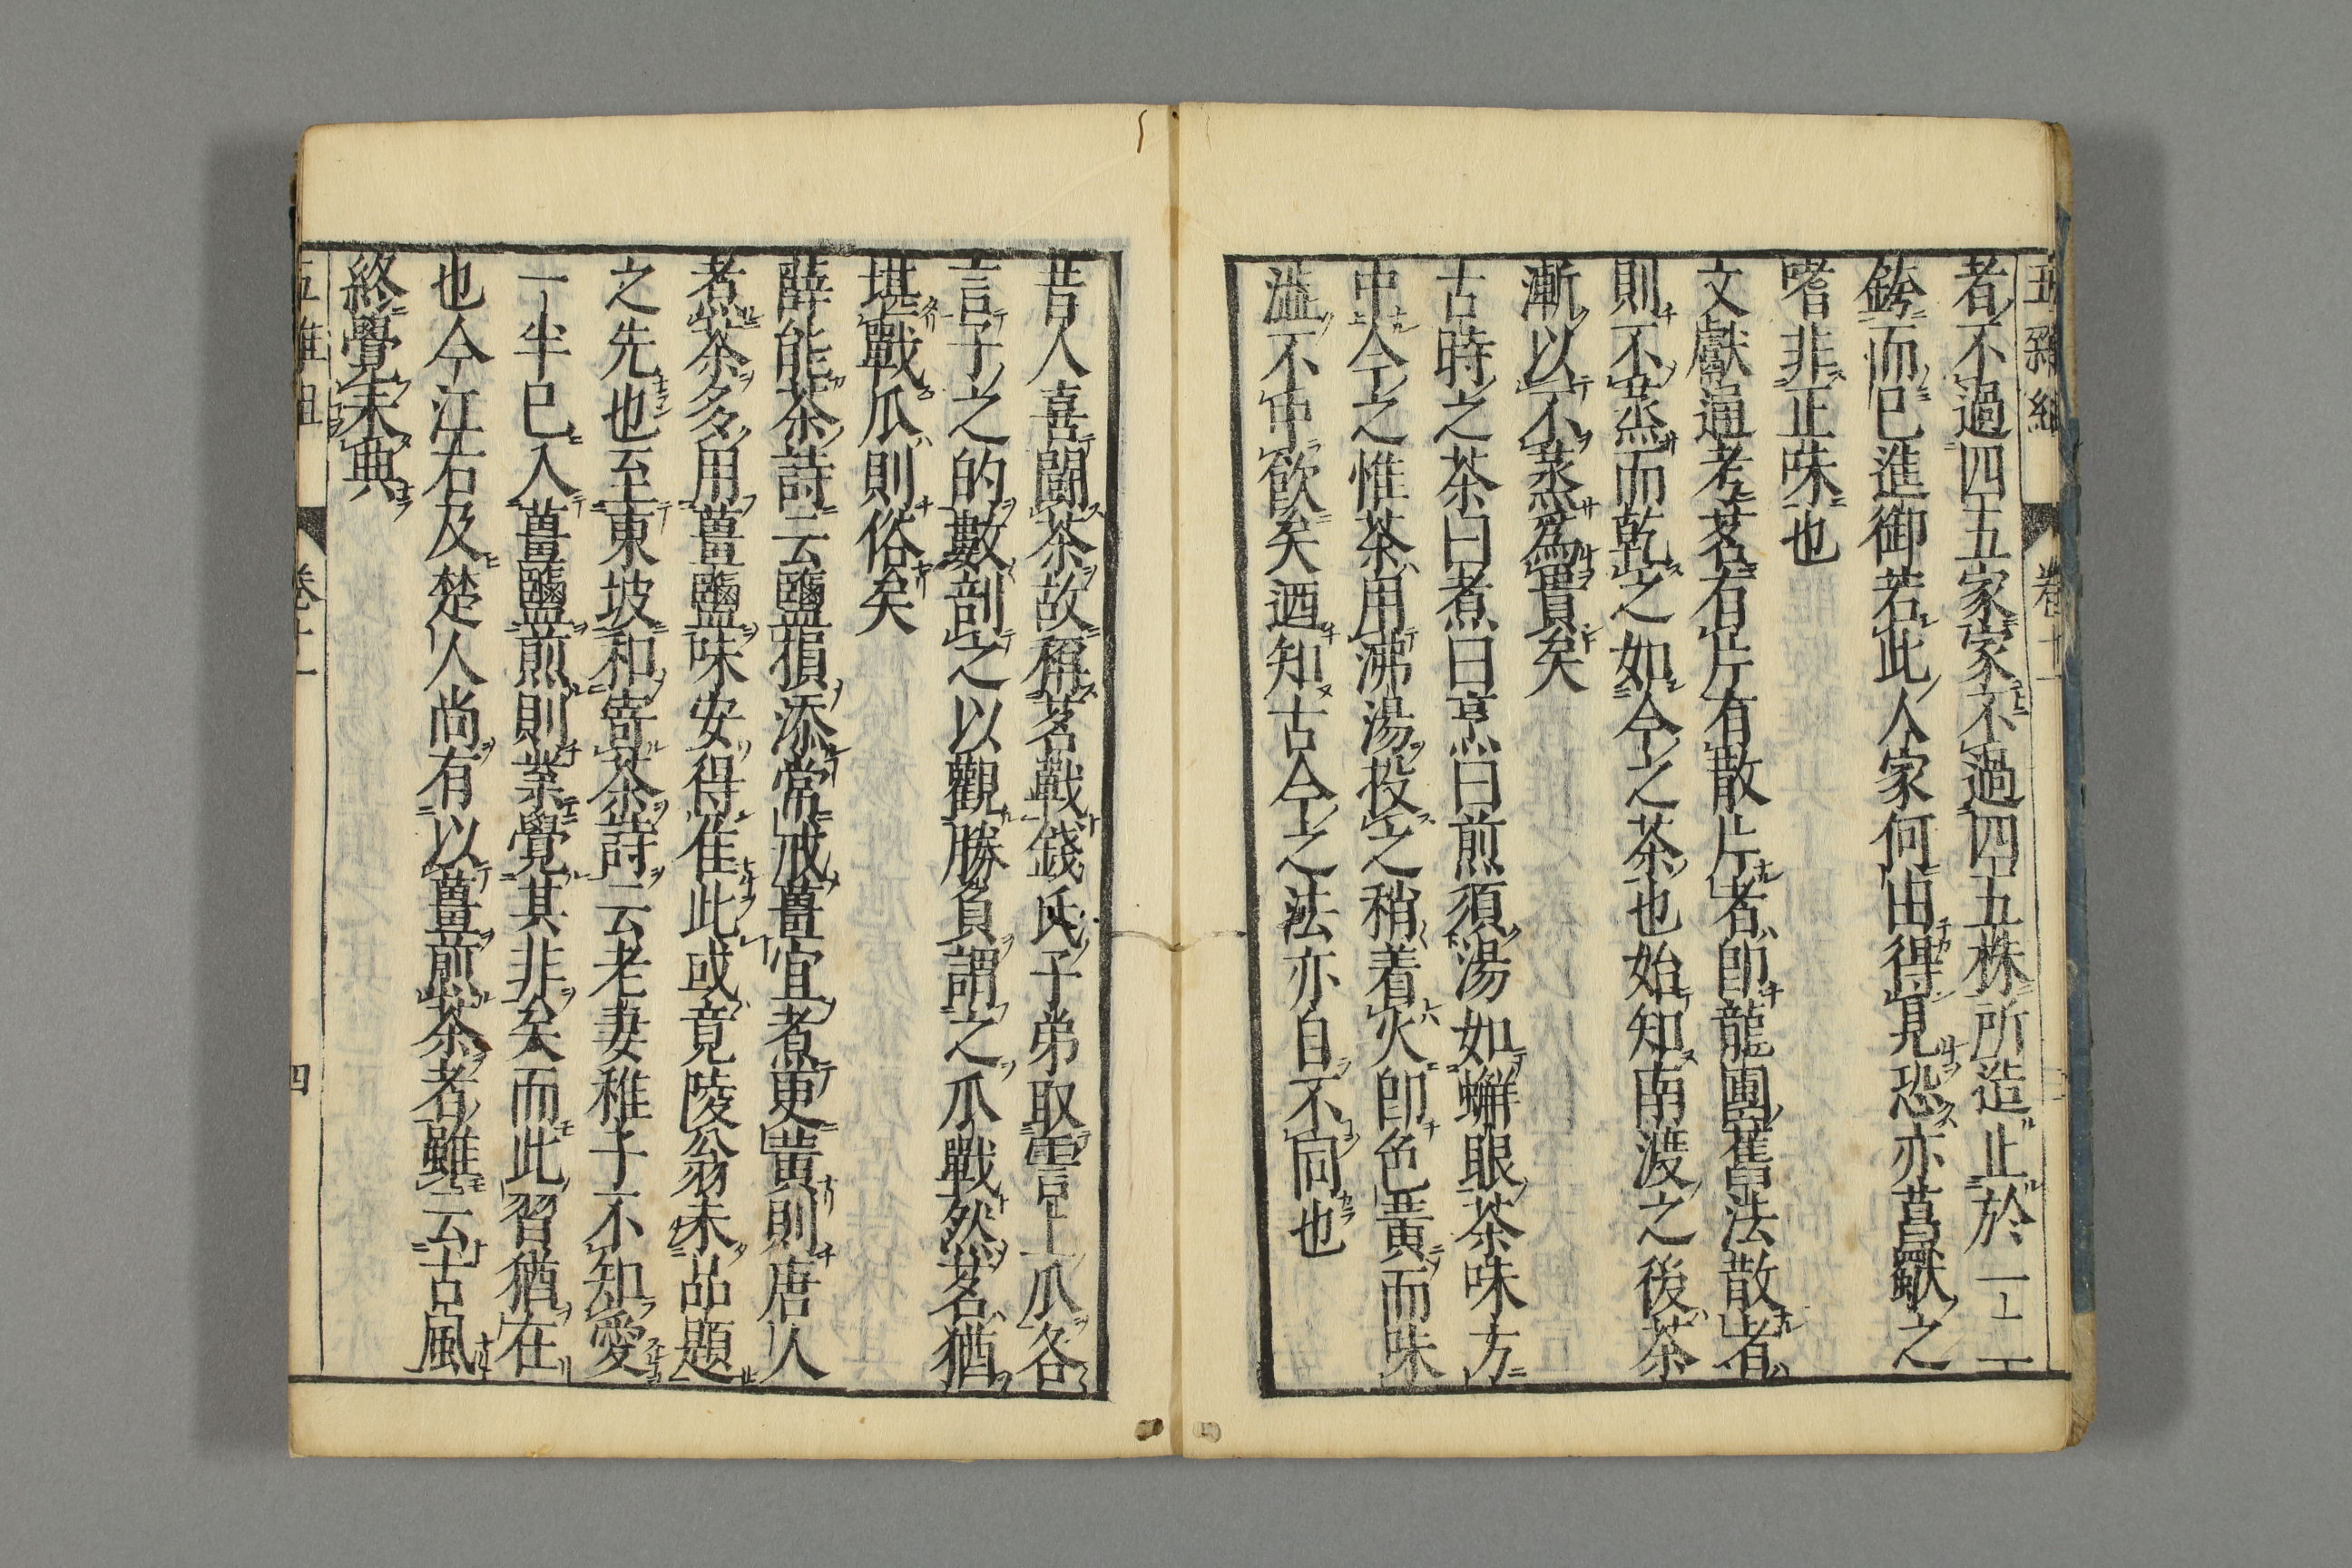 五雜組 卷十一
者不過四五家家不過四五株所造止於一二
銙而已進御若此人家何由得見恐亦菖歜之
嗜非正味也
文獻通考茗有片有散片者卽龍團舊法散者
則不蒸而乾之如今之茶也始知南渡之後茶
漸以不蒸爲貴矣
古時之茶曰煮曰烹曰煎須湯如蠏眼茶味方
中今之惟茶用沸湯投之稍着火卽色黃而味
澁不中飮矣迺知古今之法亦自不同也
昔人喜鬪茶故稱茗戰錢氏子弟取霅上瓜各
言子之的數剖之以觀勝負謂之瓜戰然茗猶
堪戰瓜則俗矣
薛能茶詩云鹽損添常戒薑宜煮更黃則唐人
煮茶多用薑鹽味安得佳此或竟陵翁未品題
之先也至東坡和寄茶詩云老妻稚子不知愛
一半已入薑鹽煎則業覺其非矣而此習猶在
也今江右及楚人尚有以薑煎茶者雖云古風
終覺未典
五雜組 卷十一 四